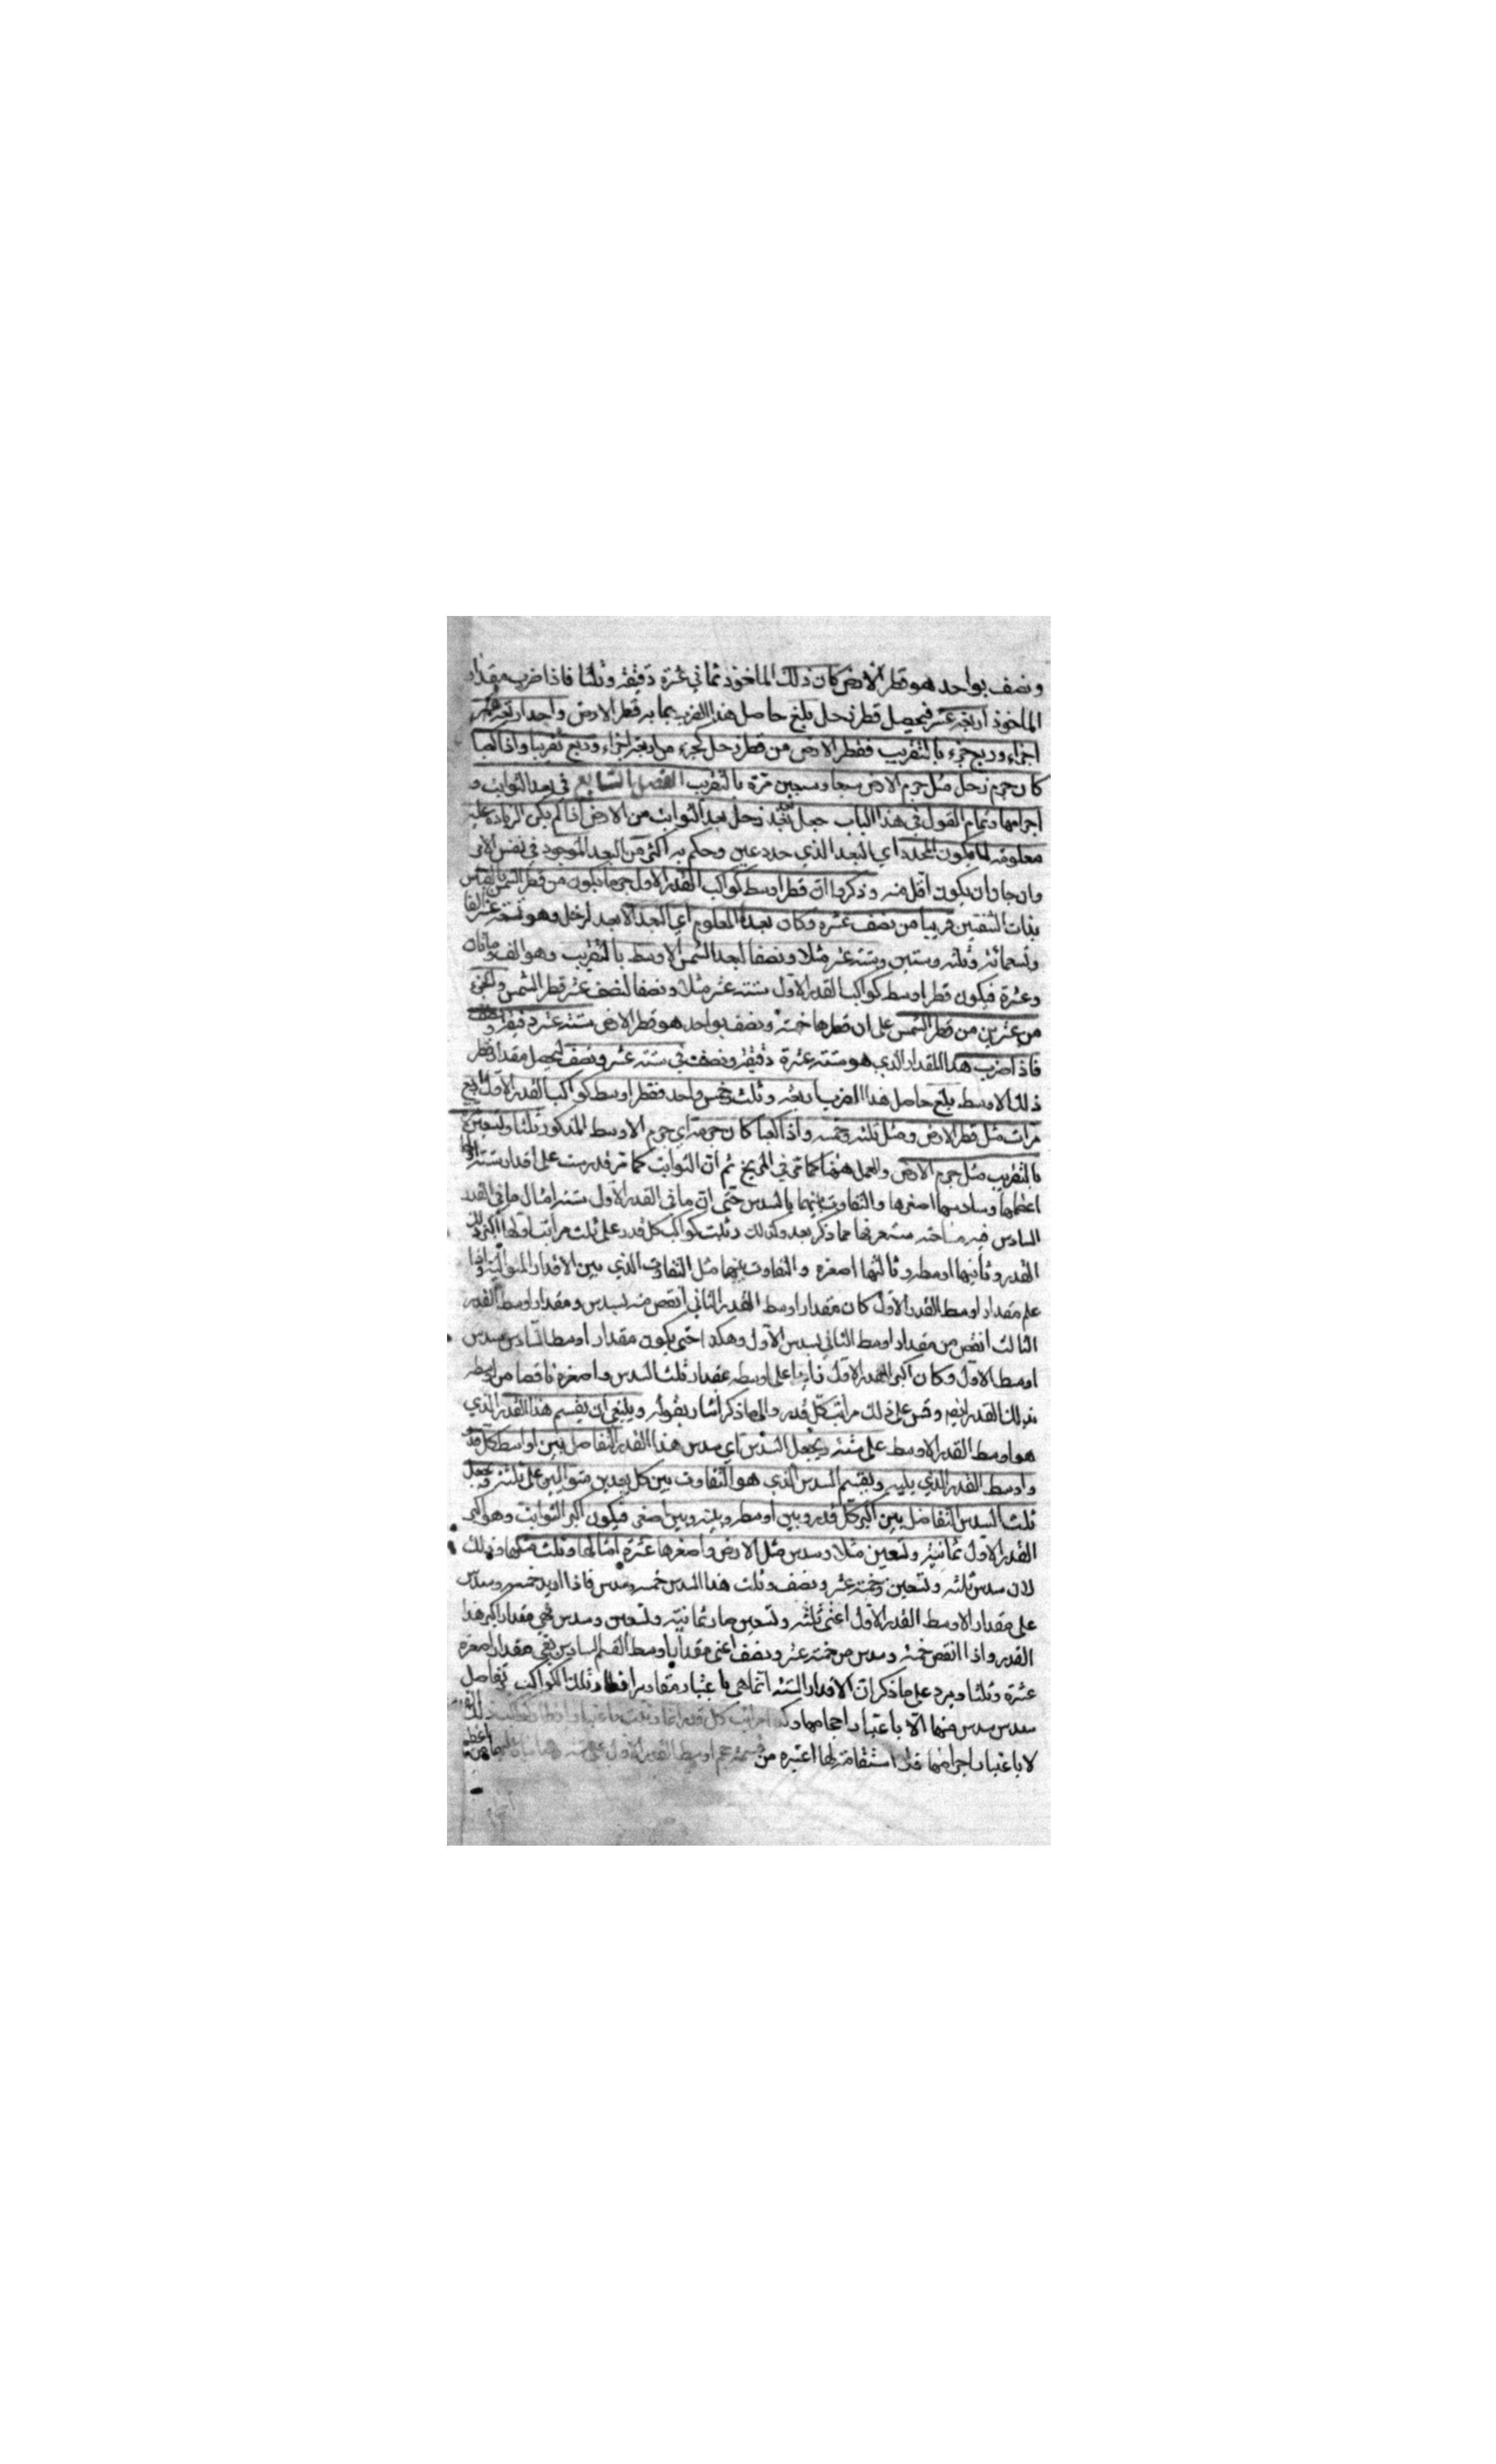 ونصف بواحد هو قطر الارض كان ذلك الماخوذ ثماني عشرة دقيقة وثلثا فاذا ضرب مقدار
الماخوذ اربعة عشر فيحصل قطر زحل بلغ حاصل هذا الضرب بما به قطر الارض واحد اربعة
اجزاء وربع جزء بالتقريب فقطر الارض من قطر زحل كجزء من اربعة اجزاء وربع تقريبا واذا كعبا
كان جرم زحل مثل جرم الارض سبعا وسبعين مرة بالتقريب الفصل السابع في بعد الثوابت و
اجرامها وتمام القول في هذا الباب جعل بعد زحل بعد الثوابت من الارض اذا لم يكن الزيادة عليه
معلومة لما يكون المحدد اي البعد الذي حدد عين وحكم به اكثر من البعد الموجود في نفس الامر
وان جاز ان يكون اقل منه وذكروا ان قطر اوسط كواكب القدر الاول جرما يكون من قطر الشمس بالقياس
بذات الثقبتين قريبا من نصف عشره وكان بعدها المعلوم اي البعد الابعد لزحل وهو تسعة عشر الفا
وتسعمائة وثلثة وستين وستة عشر مثلا ونصفا لبعد الشمس الاوسط بالتقريب وهو الف ومائتان
وعشرة فيكون قطر اوسط كواكب القدر الاول ستة عشر مثلا ونصفا لنصف عشر قطر الشمس ولجزء
من عشرين من قطر الشمس على ان قطرها خمسة ونصف بواحد هو قطر الارض ستة عشر دقيقة ونصف
فاذا ضرب هذا المقدار الذي هو ستة عشرة دقيقة ونصف في ستة عشر ونصف ليحصل مقدار قطر
ذلك الاوسط بلغ حاصل هذا الضرب اربعة وثلث وخمس واحد فقطر اوسط كواكب القدر الاول اربع
مرات مثل قطر الارض ومثل ثلثه وخمسه واذا كعبا كان جرمه اي جرم الاوسط المذكور ثلثا وتسعين مرة
بالتقريب مثل جرم الارض والعمل ههنا كما مر في المريخ ثم ان الثوابت كما مر قد رتبت على اقدار ستة اولها
اعظمها وسادسها اصغرها والتفاوت بينهما بالسدس حتى ان ما في القدر الاول ستة امثال ما في القدر
السادس فيه مساحته ستعرفها مما ذكر بعد وكذلك رتبت كواكب كل قدر على ثلث مراتب اولها اكبر ذلك
القدر وثانيها اوسطه وثالثها اصغره والتفاوت بينهما مثل التفاوت الذي بين الاقدار المتوالية واذا
علم مقدار اوسط القدر الاول كان مقدار اوسط القدر الثاني انقص منه بسدس ومقدار اوسط القدر
الثالث انقص من مقدار اوسط الثاني بسدس الاول وهكذا حتى يكون مقدار اوسط السادس سدس
اوسط الاول وكان اكبر القدر الاول زايدا على اوسطه بمقدار ثلث السدس واصغره ناقصا من اوسطه
بذلك القدر ايضا وقس على ذلك مراتب كل قدر والى ما ذكر اشار بقوله وينبغي ان يقسم هذا القدر الذي
هو اوسط القدر الاوسط على ستة ويجعل السدس اي سدس هذا القدر التفاضل بين اواسط كل قدر
واوسط القدر الذي يليه ويقسم السدس الذي هو التفاوت بين كل بعدين متواليين على ثلثة ويجعل
ثلث السدس التفاضل بين اكبر كل قدر وبين اوسطه وبينه وبين اصغره فيكون اكبر الثوابت وهو اكبر
القدر الاول ثمانية وتسعين مثلا وسدس مثل الارض واصغرها عشرة امثالها وثلث مثلها وذلك
لان سدس ثلثة وتسعين خمسة عشر ونصف وثلث هذا السدس خمسة وسدس فاذا ازيد خمسة وسدس
على مقدار الاوسط القدر الاول اعني ثلثة وتسعين صار ثمانية وتسعين وسدس فهي مقدار اكبر هذا
القدر واذا انقص خمسة وسدس من خمسة عشر ونصف اعني مقدار اوسط القسم السادس بقي مقدار اصغره
عشرة وثلثا ويرد على ما ذكر ان الاقدار الستة انما هي باعتبار مقادير اقطار تلك الكواكب تفاضل
سدس سدس منها الا باعتبار احجامها وكذا مراتب كل قدر انما رتبت باعتبار اقطار تلك
لا باعتبار اجرامها فلا استقامة لها اعتبره من قسمة جرم اوسط القدر الاول على ستة